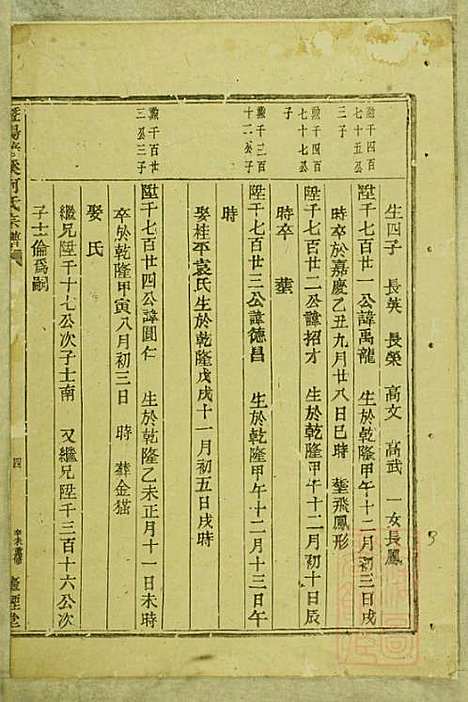 生四子 長英 長榮 高文 高武 一女長鳳
勲千四百七十五公三子
陞千七百廿一公諱禹龍 生於乾隆甲午十二月初三日戌
時卒於嘉慶乙丑九月廿八日巳時 塟飛鳳形
勲千四百七十七公子
陞千七百廿二公諱招才 生於乾隆甲午十二月初十日辰
時卒 塟
勲千三百十二公子
陞千七百廿三公諱德昌 生於乾隆甲午十二月十三日午
時
娶桂平袁氏生於乾隆戊戌十一月初五日戌時
勲千百廿三公三子
陞千七百廿四公諱圓仁 生於乾隆乙未正月十一日未時
卒於乾隆甲寅八月初三日 時 葬金猫
娶氏
繼兄陞千十七公次子士南 又繼兄陞千三百十六公次
子士倫為嗣
暨陽 溪何氏宗譜
四
辛未重修
堂